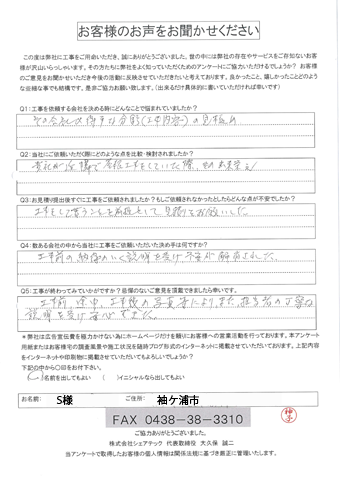 お客様のお声をお聞かせください
この度は弊社に工事をご用命いただき、誠にありがとうございました。世の中には弊社の存在やサービスをご存知ないお客
様が沢山いらっしゃいます。その方たちに弊社をよく知っていただくためのアンケートにご協力いただけるでしょうか? お客様
のご意見をお聞かせいただき今後の活動に反映させていきたいと考えております。良かったこと、嬉しかったことどのよう
な些細な事でも結構です。是非ご協力お願い致します。(出来るだけ具体的に書いていただければ幸いです)
Q1:工事を依頼する会社を決める時にどんなことで悩まれていましたか?
その会社の得手な分野(工事内容)の見極め
Q2:当社にご依頼いただく際にどのような点を比較・検討されましたか?
貴社が近場で
Q3:お見積り提出後すぐに工事をご依頼されましたか?もしご依頼されなかったとしたらどんな点が不安でしたか?
工事をして貰うことを前提として見積りをお願いした。
Q4:数ある会社の中から当社に工事をご依頼いただいた決め手は何ですか?
工事前の納得のいく説明を受け不安が解消された。
Q5:工事が終わってみていかがですか?忌憚のないご意見を頂戴できましたら幸いです。
工事前、途中、工事後の写真等により、また、担当者の丁寧な
説明を受け安心できた。
*弊社は広告宣伝費を極力かけない為にホームページだけを頼りにお客様への営業活動を行っております。本アンケート
用紙またはお客様宅の調査風景や施工状況を随時ブログ形式のインターネットに掲載させていただいております。上記内容
をインターネットや印刷物に掲載させていただいてもよろしいでしょうか?
下記の中から○印をお付下さい。
( )名前を出してもよい ( )イニシャルなら出してもよい
お名前: S様 ご住所: 袖ケ浦市
FAX 0438-38-3310
ご協力ありがとうございました。
株式会社シェアテック 代表取締役 大久保 誠二
当アンケートで取得したお客様の個人情報は関係法規に基づき厳正に管理いたします。